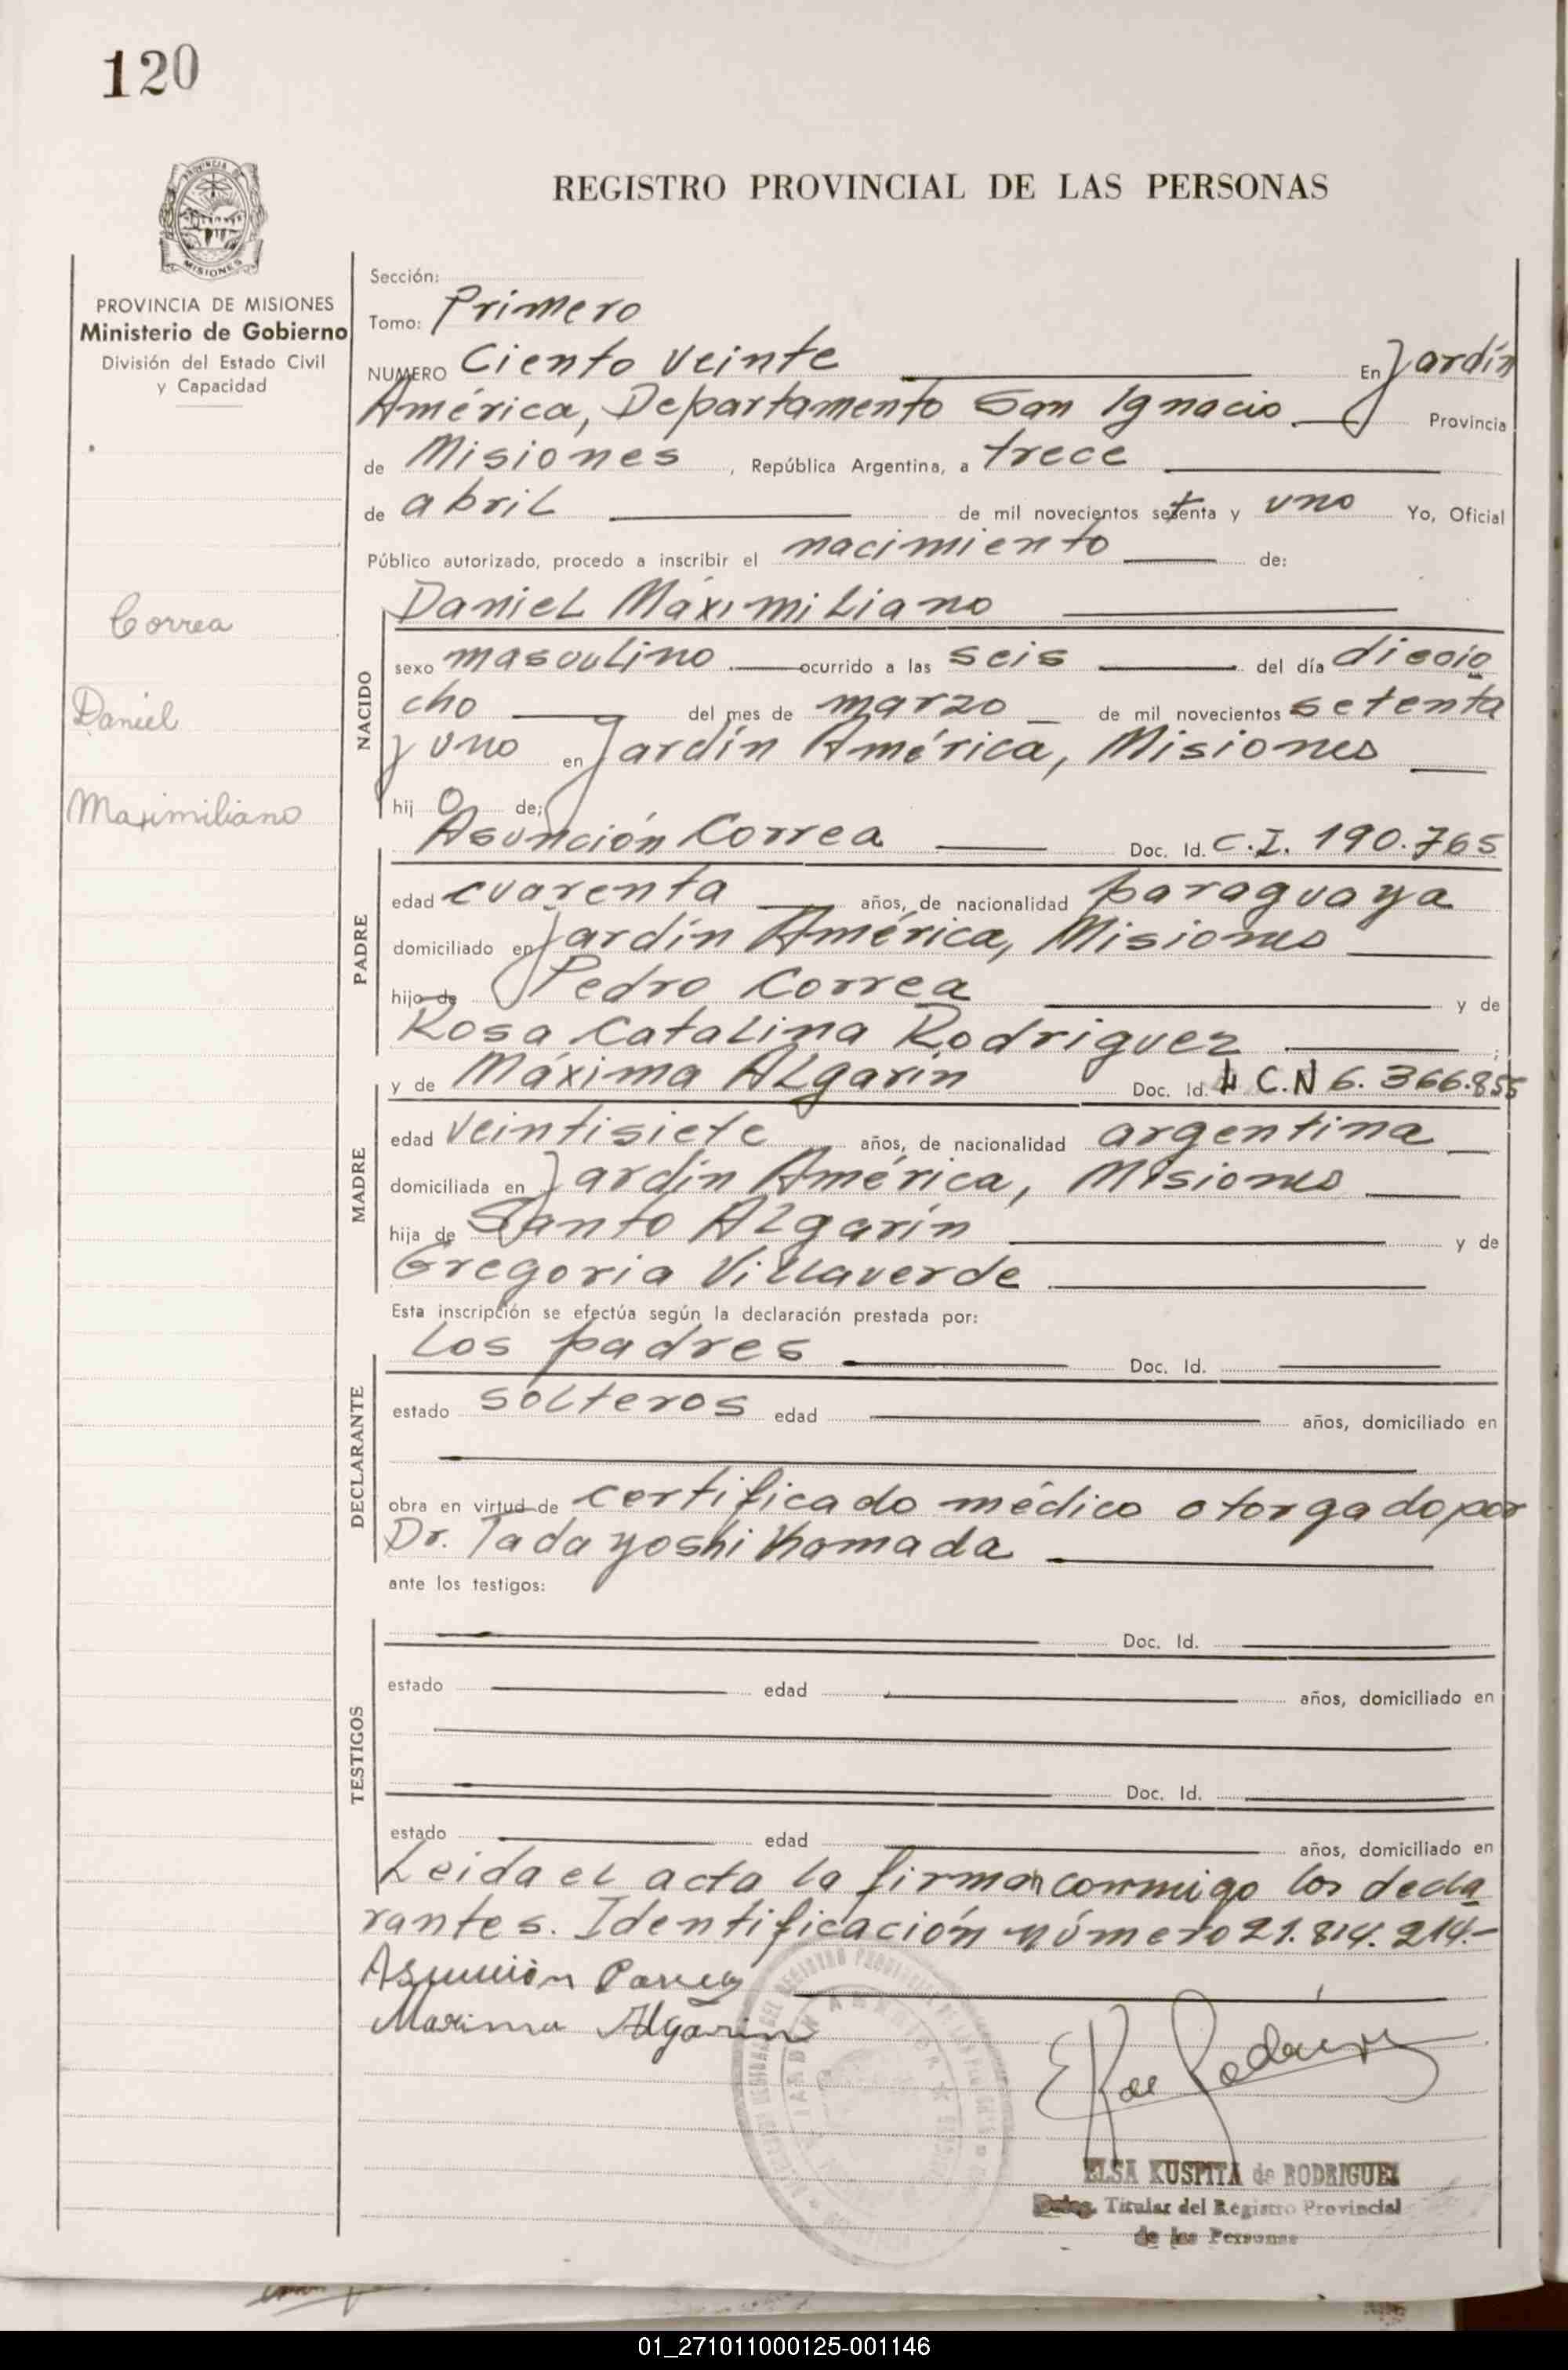 120
REGISTRO PROVINCIAL DE LAS PERSONAS
MISIONES
PROVINCIA DE MISIONES
Ministerio de Gobierno
División del Estado Civil
y Capacidad
Correa
Daniel
Maximiliano
Sección:
Tomo: Primero
NUMERO Ciento veinte En Jardín
América, Departamento San Ignacio Provincia
de Misiones, República Argentina, a trece
de abril de mil novecientos setenta y uno Yo, Oficial
Público autorizado, procedo a inscribir el nacimiento de:
NACIDO
Daniel Máximiliano
sexo masculino ocurrido a las seis del día diecio
cho del mes de marzo de mil novecientos setenta
y uno en Jardín América, Misiones
hijo de:
PADRE
Asunción Correa Doc. Id. C.I. 190.765
edad cuarenta años, de nacionalidad paraguaya
domiciliado en Jardín América, Misiones
hijo de Pedro Correa y de
Rosa Catalina Rodriguez;
MADRE
y de Máxima Algarín Doc. Id. L C.N 6.366.855
edad veintisiete años, de nacionalidad argentina
domiciliada en Jardín América, Misiones
hija de Santo Algarín y de
Gregoria Villaverde
Esta inscripción se efectúa según la declaración prestada por:
DECLARANTE
Los padres Doc. Id.
estado solteros edad años, domiciliado en
obra en virtud de certificado médico otorgado por
Dr. Tadayoshi Kamada
ante los testigos:
TESTIGOS
Doc. Id.
estado edad años, domiciliado en
Doc. Id.
estado edad años, domiciliado en
Leida el acta la firman conmigo los decla
rantes. Identificación número 21.814.214.-
Asunción Correa
Maxima Algarin
ELSA KUSPITA de RODRIGUEZ
Titular del Registro Provincial
de las Personas
01_271011000125-001146